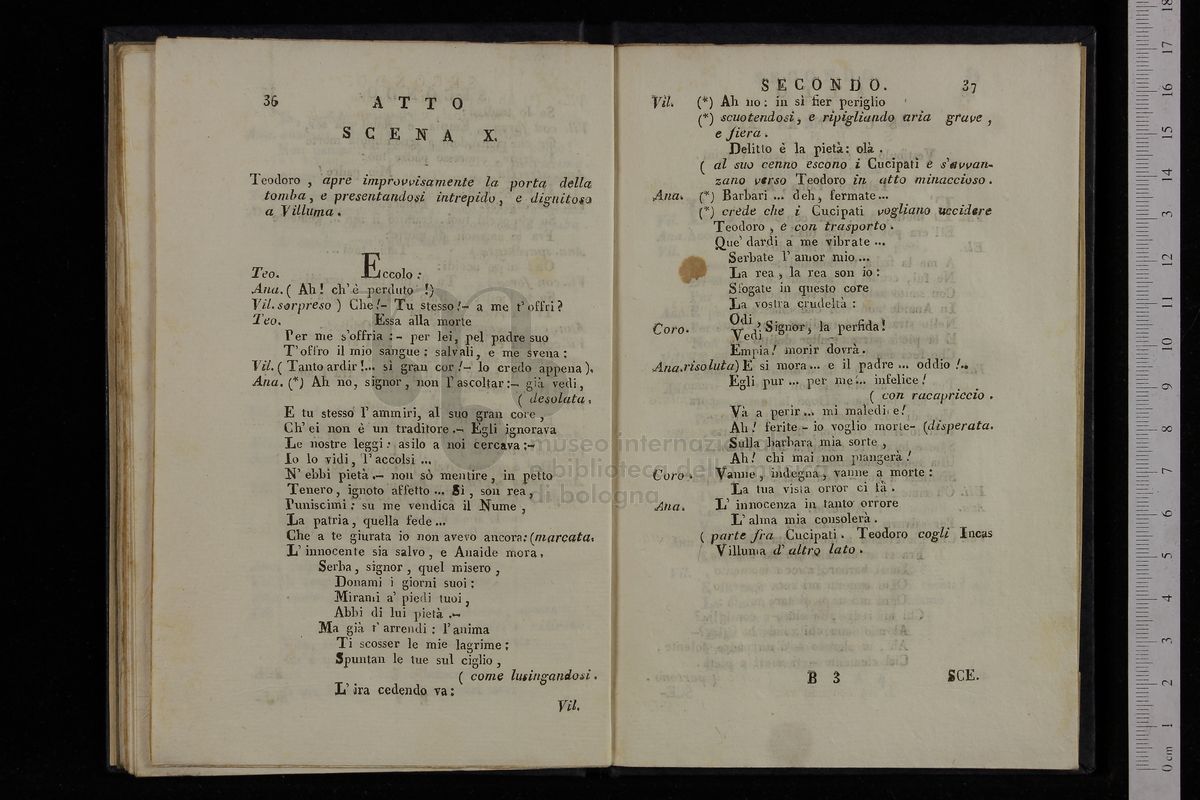 36 ATTO
SCENA X.
Teodoro , apre improvvisamente la porta della
tomba , e presentandosi intrepido , e dignitoso
a Villuma .
Teo. Eccolo :
Ana. ( Ah ! ch' è perduto !)
Vil. sorpreso ) Che !- Tu stesso !- a me t' offri ?
Teo. Essa alla morte
Per me s'offria :- per lei, pel padre suo
T' offro il mio sangue : salvali, e me svena :
Vil. ( Tanto ardir !... sì gran cor !- lo credo appena ).
Ana. (*) Ah no, signor, non l' ascoltar :- già vedi,
( desolata .
E tu stesso l' ammiri, al suo gran core ,
Ch' ei non è un traditore .- Egli ignorava
Le nostre leggi : asilo a noi cercava ;-
Io lo vidi, l' accolsi ...
N' ebbi pietà .- non sò mentire, in petto
Tenero, ignoto affetto ... Si , son rea,
Puniscimi ; su me vendica il Nume ,
La patria, quella fede ...
Che a te giurata io non avevo ancora: (marcata.
L' innocente sia salvo , e Anaide mora.
Serba, signor , quel misero ,
Donami i giorni suoi :
Mirami a' piedi tuoi ,
Abbi di lui pietà .-
Ma già t' arrendi : l' anima
Ti scosser le mie lagrime ;
Spuntan le tue sul ciglio ,
( come lusingandosi .
L' ira cedendo va :
Vil.
SECONDO. 37
Vil. (*) Ah no : in sì fier periglio
(*) scuotendosi, e ripigliando aria grave ,
e fiera .
Delitto è la pietà : olà .
( al suo cenno escono i Cucipati e s'avvan-
zano verso Teodoro in atto minaccioso .
Ana. (*) Barbari ... deh, fermate ...
(*) crede che i Cucipati vogliano uccidere
Teodoro , e con trasporto .
Que' dardi a me vibrate ...
Serbate l' amor mio ...
La rea , la rea son io :
Sfogate in questo core
La vostra crudeltà :
Coro. Odi
Vedi , Signor, la perfida !
Empia ! morir dovrà .
Ana. risoluta) E si mora ... e il padre ... oddio !..
Egli pur ... per me ... infelice !
( con racapriccio .
Và a perir ... mi maledice !
Ah ! ferite - io voglio morte- (disperata.
Sulla barbara mia sorte ,
Ah ! chi mai non piangerà !
Coro . Vanne , indegna , vanne a morte :
La tua vista orror ci fà .
Ana. L' innocenza in tanto orrore
L' alma mia consolerà .
( parte fra Cucipati . Teodoro cogli Incas
Villuma d' altro lato .
B 3 SCE.
museo internazio
e biblioteca della musica
di bologna
0 cm 1 2 3 4 5 6 7 8 9 10 11 12 13 14 15 16 17 18